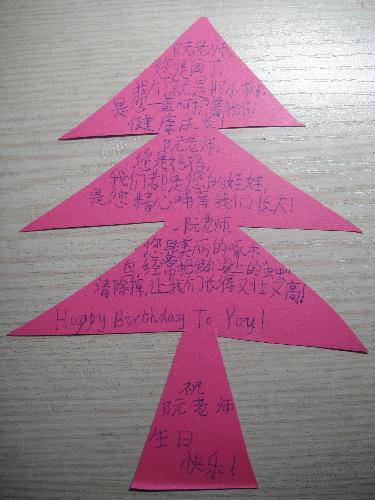 阮老师,
您是园丁,
我们就是那小树,
是您一直呵护着我们
健康成长。
阮老师,
您是妈妈,
我们都是您的娃娃,
是您精心哺育我们长大!
阮老师
您是美丽的啄木
鸟,经常把我们身上的“虫”
清除掉,让我们长得又壮又高!
Happy Birthday To You!
祝
阮老师
生日
快乐!